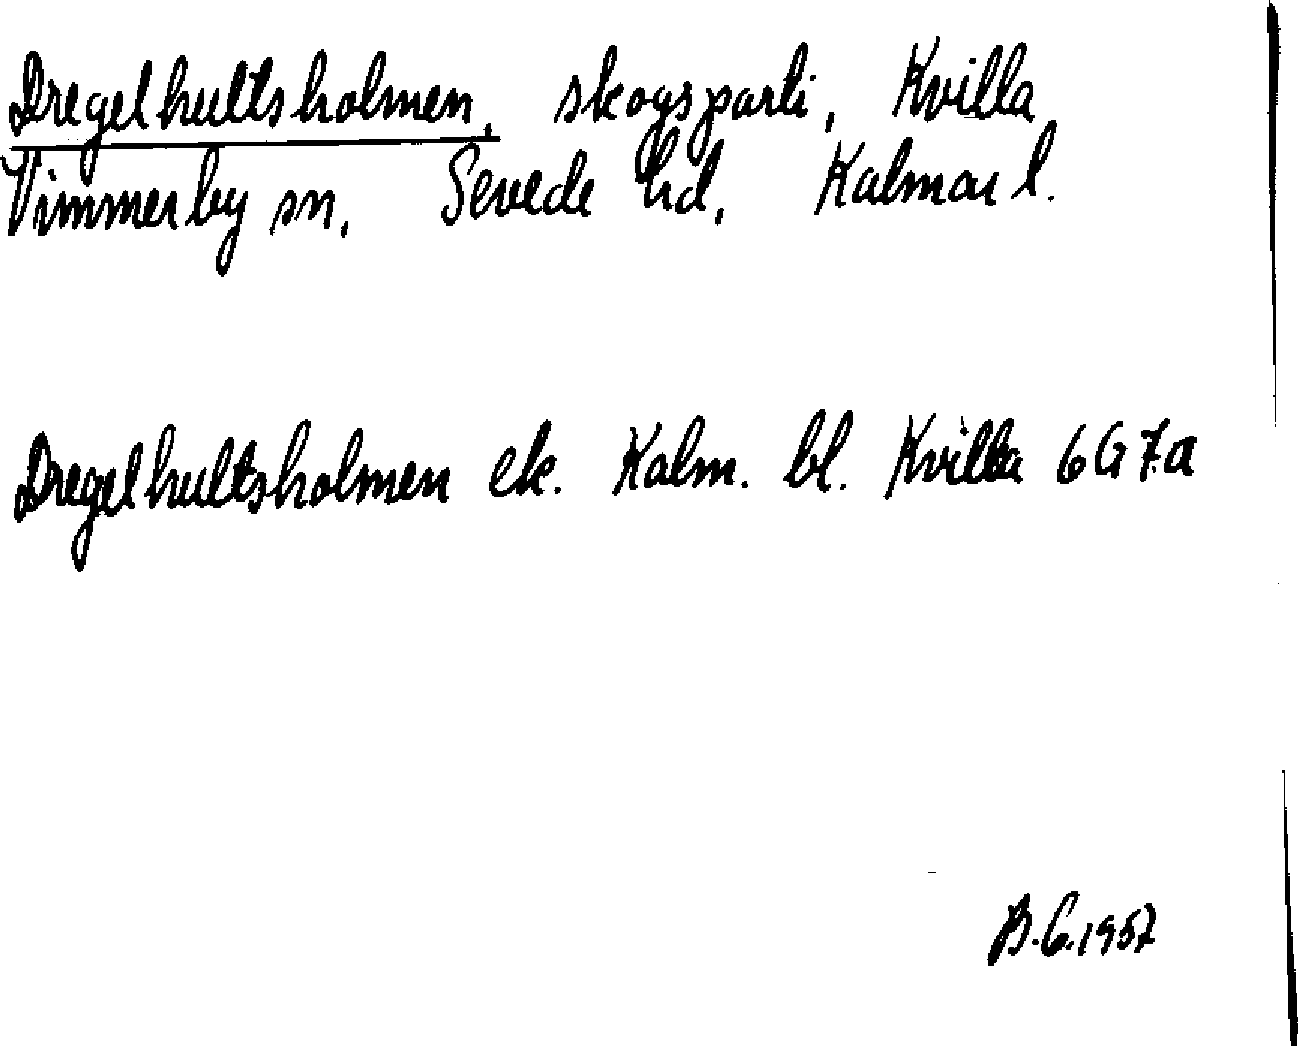 Dregelhultsholmen, skogsparti, Kvilla
Vimmerby sn, Sevede hd, Kalmar l.
Dregelhultsholmen ek. Kalm. bl. Kvilla 6G7a
B.G.1957